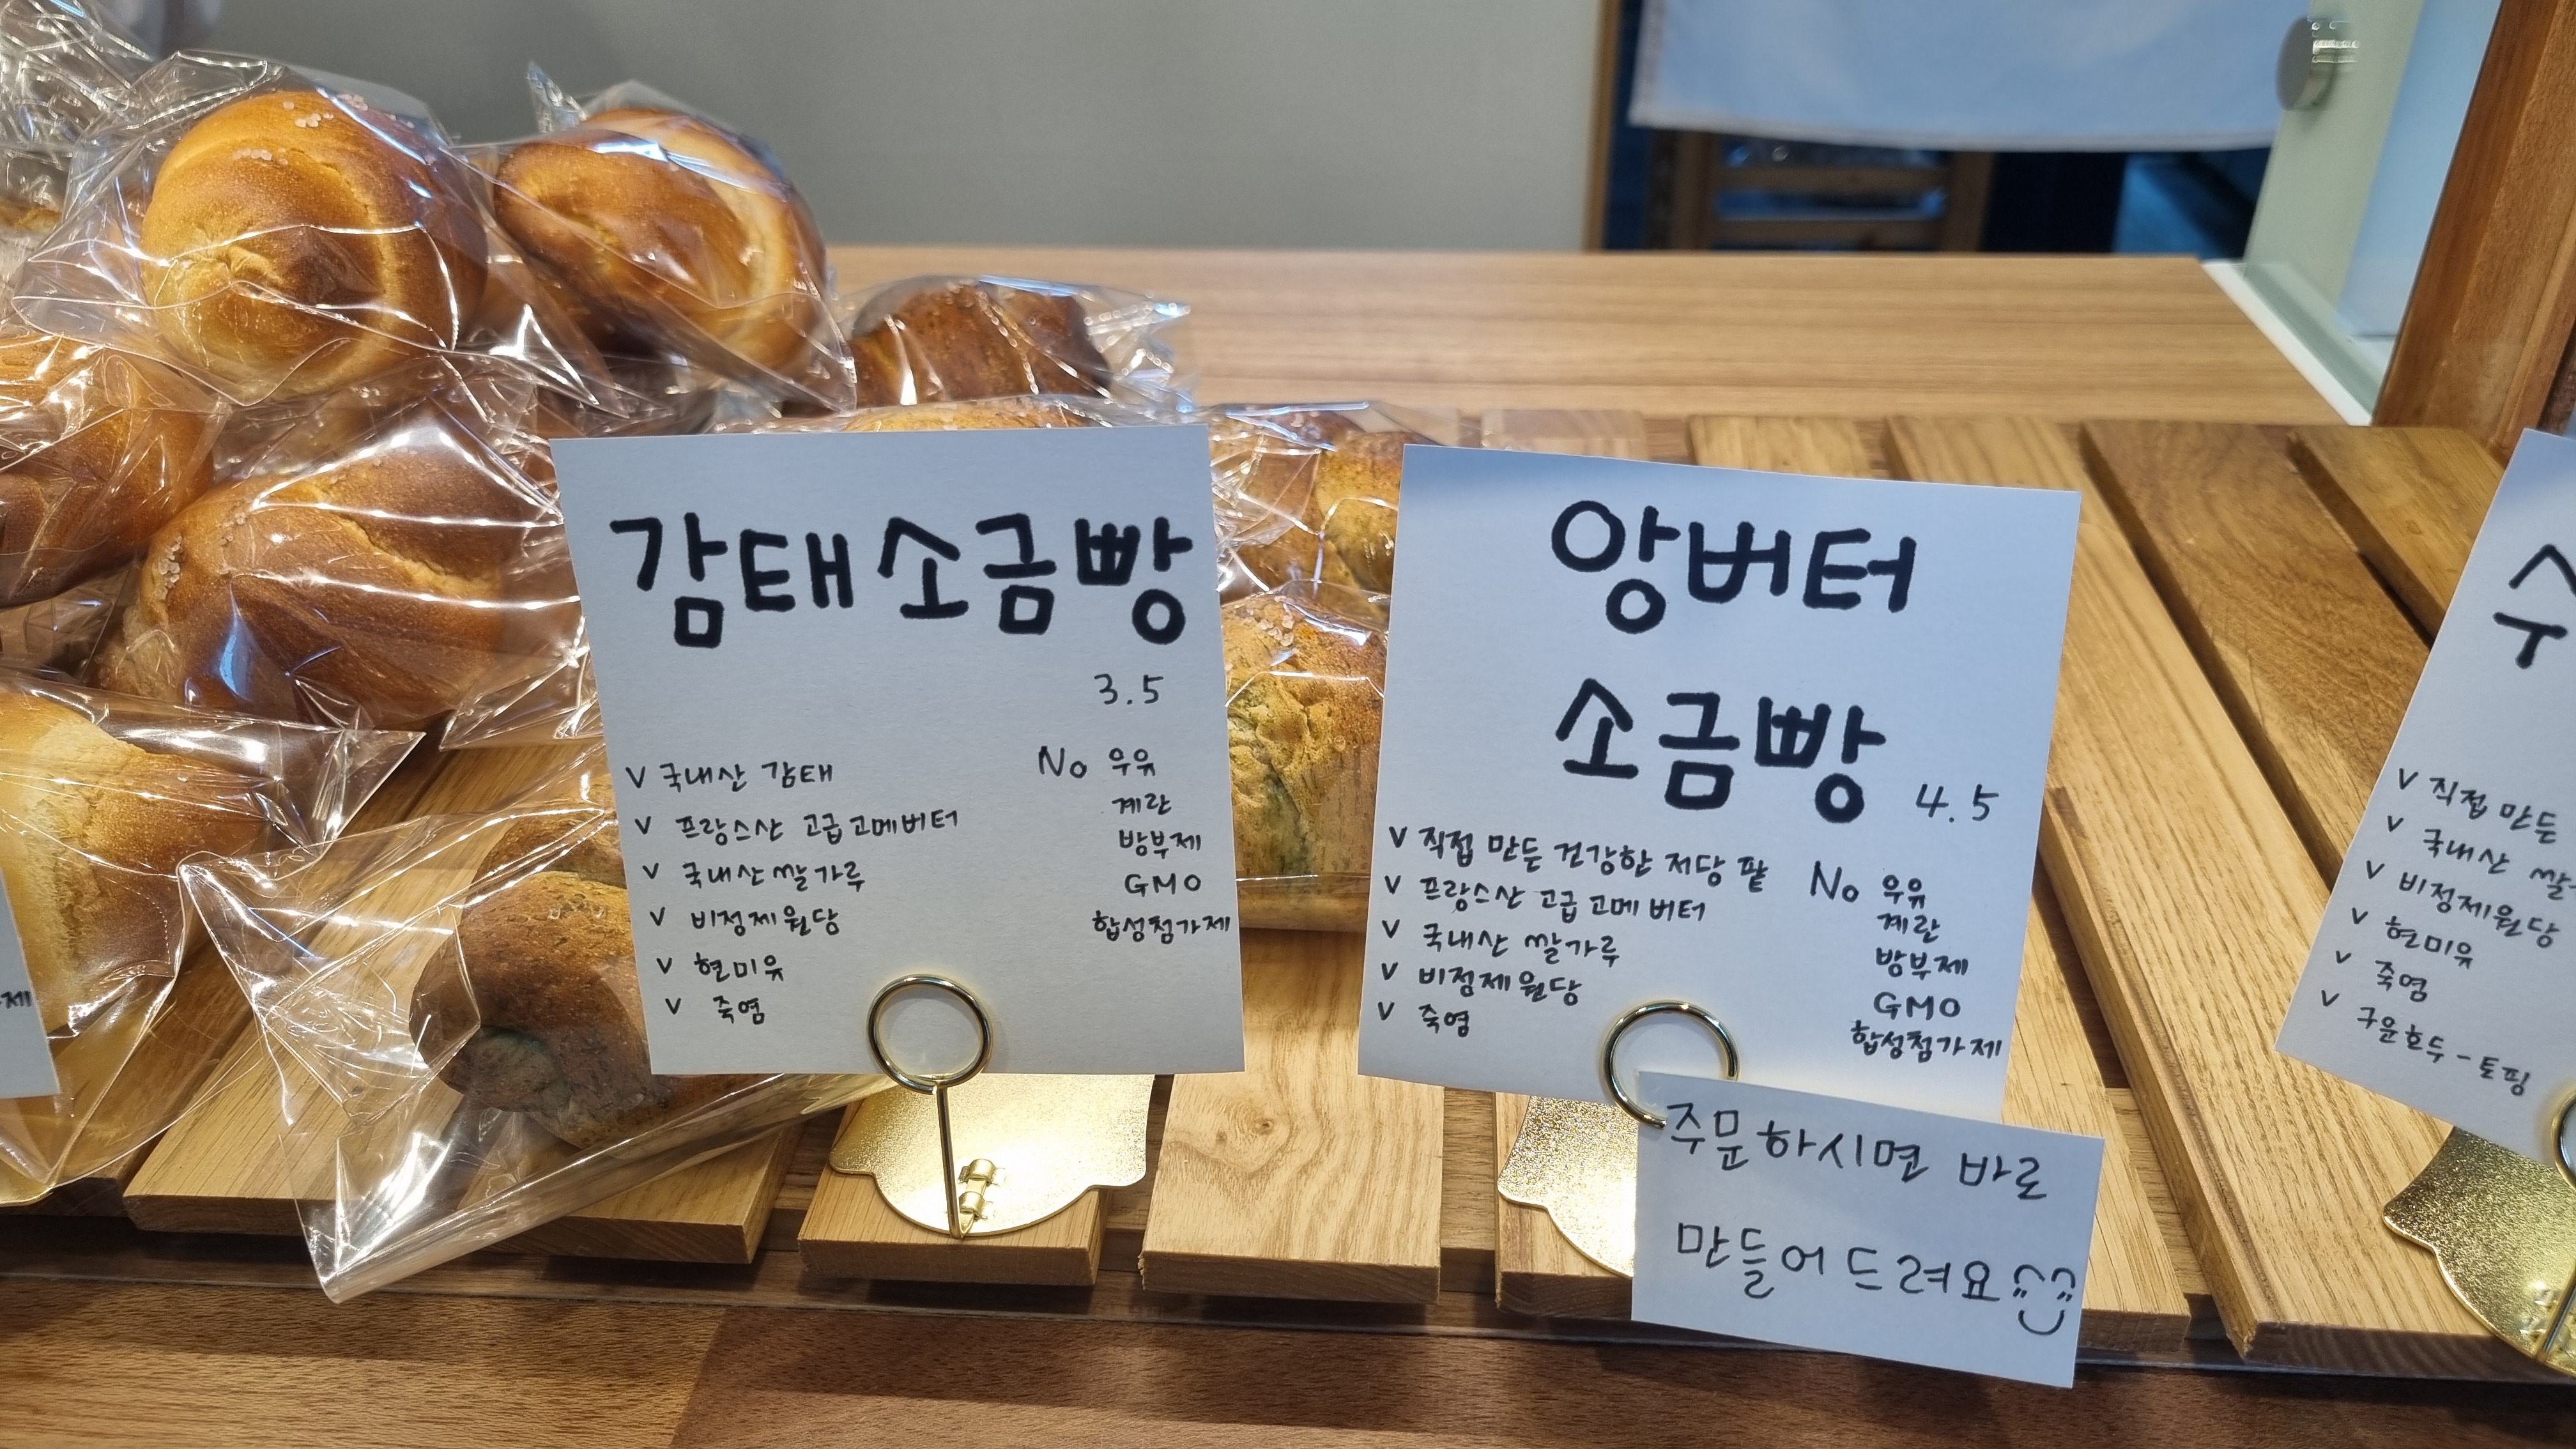 제
감태소금빵
3.5
V 국내산 감태
V 프랑스산 고급고메버터
V 국내산쌀가루
V 비정제원당
V 현미유
V 죽염
No 우유
계란
방부제
GMO
합성첨가제
앙버터
소금빵
4.5
V 직접 만든 건강한 저당 팥
V 프랑스산 고급고메 버터
V 국내산 쌀가루
V 비정제원당
V 죽염
No 우유
계란
방부제
GMO
합성첨가제
주문하시면 바로
만들어드려요
수
V 직접 만든
V 국내산 쌀
V 비정제원당
V 현미유
V 죽염
V 구운호두-토핑